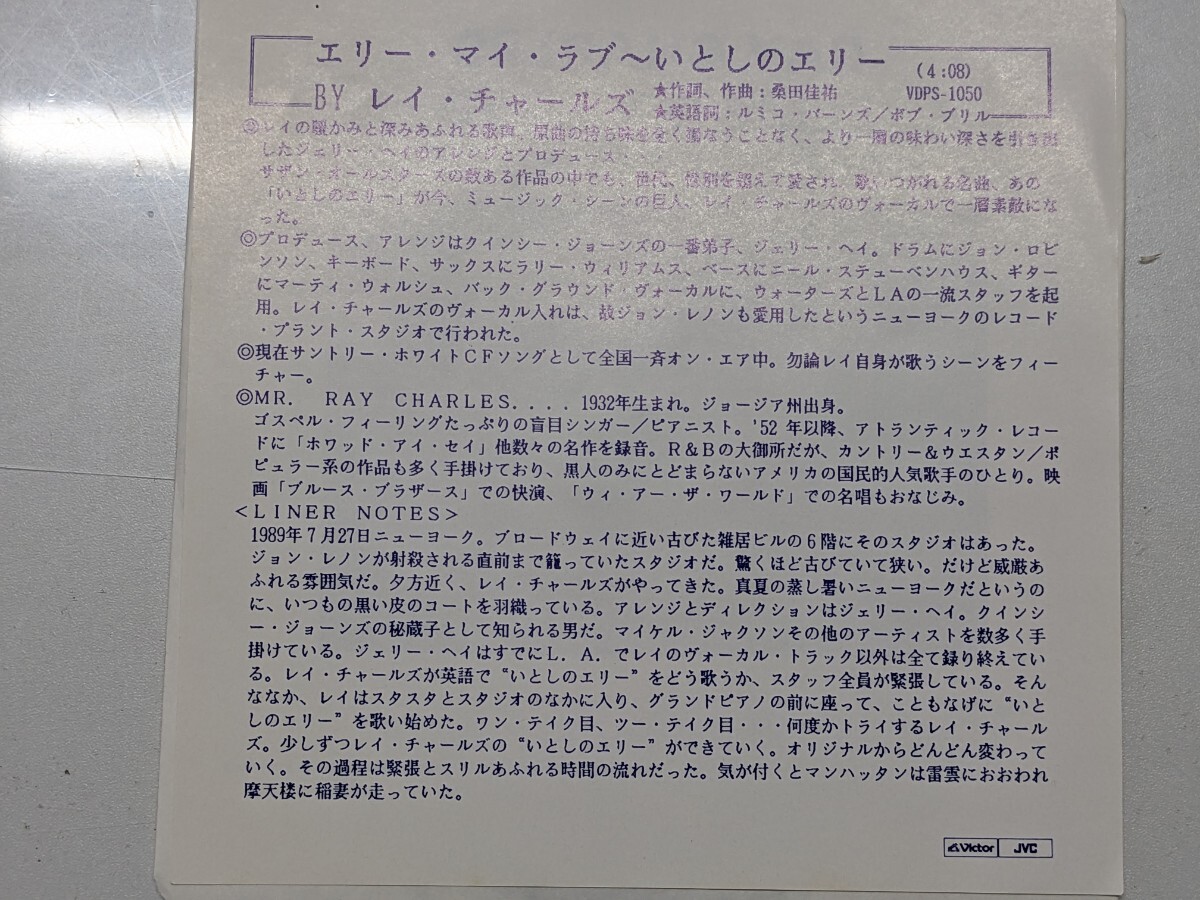 エリー・マイ・ラブ～いとしのエリー
(4:08)
BY レイ・チャールズ
★作詞、作曲：桑田佳祐
VDPS-1050
★英語詞：ルミコ・バーンズ／ボブ・ブリル
◎レイの暖かみと深みあふれる歌声、原曲の持ち味を全く損なうことなく、より一層の味わい深さを引き出
したジェリー・ヘイのアレンジとプロデュース・・・
サザン・オールスターズの数ある作品の中でも、世代、性別を超えて愛され、歌いつがれる名曲、あの
「いとしのエリー」が今、ミュージック・シーンの巨人、レイ・チャールズのヴォーカルで一層素敵にな
った。
◎プロデュース、アレンジはクインシー・ジョーンズの一番弟子、ジェリー・ヘイ。ドラムにジョン・ロビ
ンソン、キーボード、サックスにラリー・ウィリアムス、ベースにニール・ステューベンハウス、ギター
にマーティ・ウォルシュ、バック・グラウンド・ヴォーカルに、ウォーターズとLAの一流スタッフを起
用。レイ・チャールズのヴォーカル入れは、故ジョン・レノンも愛用したというニューヨークのレコード
・プラント・スタジオで行われた。
◎現在サントリー・ホワイトCFソングとして全国一斉オン・エア中。勿論レイ自身が歌うシーンをフィー
チャー。
◎MR. RAY CHARLES....1932年生まれ。ジョージア州出身。
ゴスペル・フィーリングたっぷりの盲目シンガー／ピアニスト。'52年以降、アトランティック・レコー
ドに「ホワッド・アイ・セイ」他数々の名作を録音。R&Bの大御所だが、カントリー&ウエスタン／ポ
ピュラー系の作品も多く手掛けており、黒人のみにとどまらないアメリカの国民的人気歌手のひとり。映
画「ブルース・ブラザース」での快演、「ウィ・アー・ザ・ワールド」での名唱もおなじみ。
<LINER NOTES>
1989年7月27日ニューヨーク。ブロードウェイに近い古びた雑居ビルの6階にそのスタジオはあった。
ジョン・レノンが射殺される直前まで籠っていたスタジオだ。驚くほど古びていて狭い。だけど威厳あ
ふれる雰囲気だ。夕方近く、レイ・チャールズがやってきた。真夏の蒸し暑いニューヨークだというの
に、いつもの黒い皮のコートを羽織っている。アレンジとディレクションはジェリー・ヘイ。クインシ
ー・ジョーンズの秘蔵子として知られる男だ。マイケル・ジャクソンその他のアーティストを数多く手
掛けている。ジェリー・ヘイはすでにL.A.でレイのヴォーカル・トラック以外は全て録り終えてい
る。レイ・チャールズが英語で“いとしのエリー”をどう歌うか、スタッフ全員が緊張している。そん
ななか、レイはスタスタとスタジオのなかに入り、グランドピアノの前に座って、こともなげに“いと
しのエリー”を歌い始めた。ワン・テイク目、ツー・テイク目・・・何度かトライするレイ・チャール
ズ。少しずつレイ・チャールズの“いとしのエリー”ができていく。オリジナルからどんどん変わって
いく。その過程は緊張とスリルあふれる時間の流れだった。気が付くとマンハッタンは雷雲におおわれ
摩天楼に稲妻が走っていた。
Victor JVC